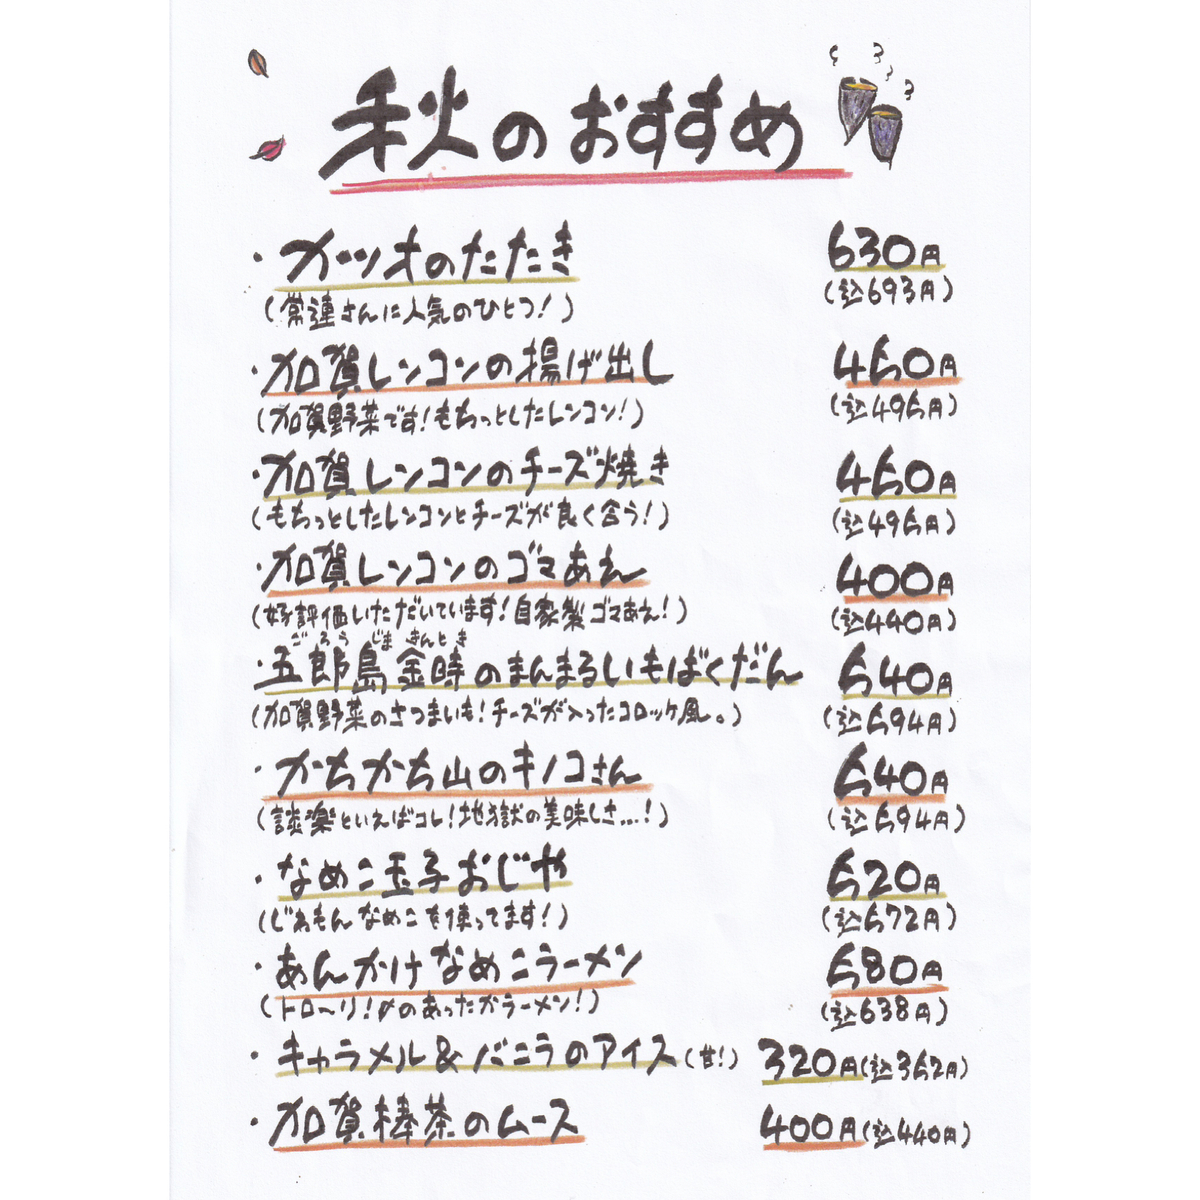 秋のおすすめ
・カツオのたたき 630円
(常連さんに人気のひとつ!) (込693円)
・加賀レンコンの揚げ出し 450円
(加賀野菜です!もちっとしたレンコン!) (込495円)
・加賀レンコンのチーズ焼き 450円
(もちっとしたレンコンとチーズが良く合う!) (込495円)
・加賀レンコンのゴマあえ 400円
(好評価いただいています!自家製ゴマあえ!) (込440円)
ごろうじまきんとき
・五郎島金時のまんまるいもばくだん 540円
(加賀野菜のさつまいも!チーズが入ったコロッケ風。) (込594円)
・かちかち山のキノコさん 540円
(談楽といえばコレ!地獄の美味しさ...!) (込594円)
・なめこ玉子おじや 520円
(じわもんなめこを使ってます!) (込572円)
・あんかけなめこラーメン 580円
(トロ〜リ!〆のあったかラーメン!) (込638円)
・キャラメル&バニラのアイス(甘!) 320円(込352円)
・加賀棒茶のムース 400円(込440円)